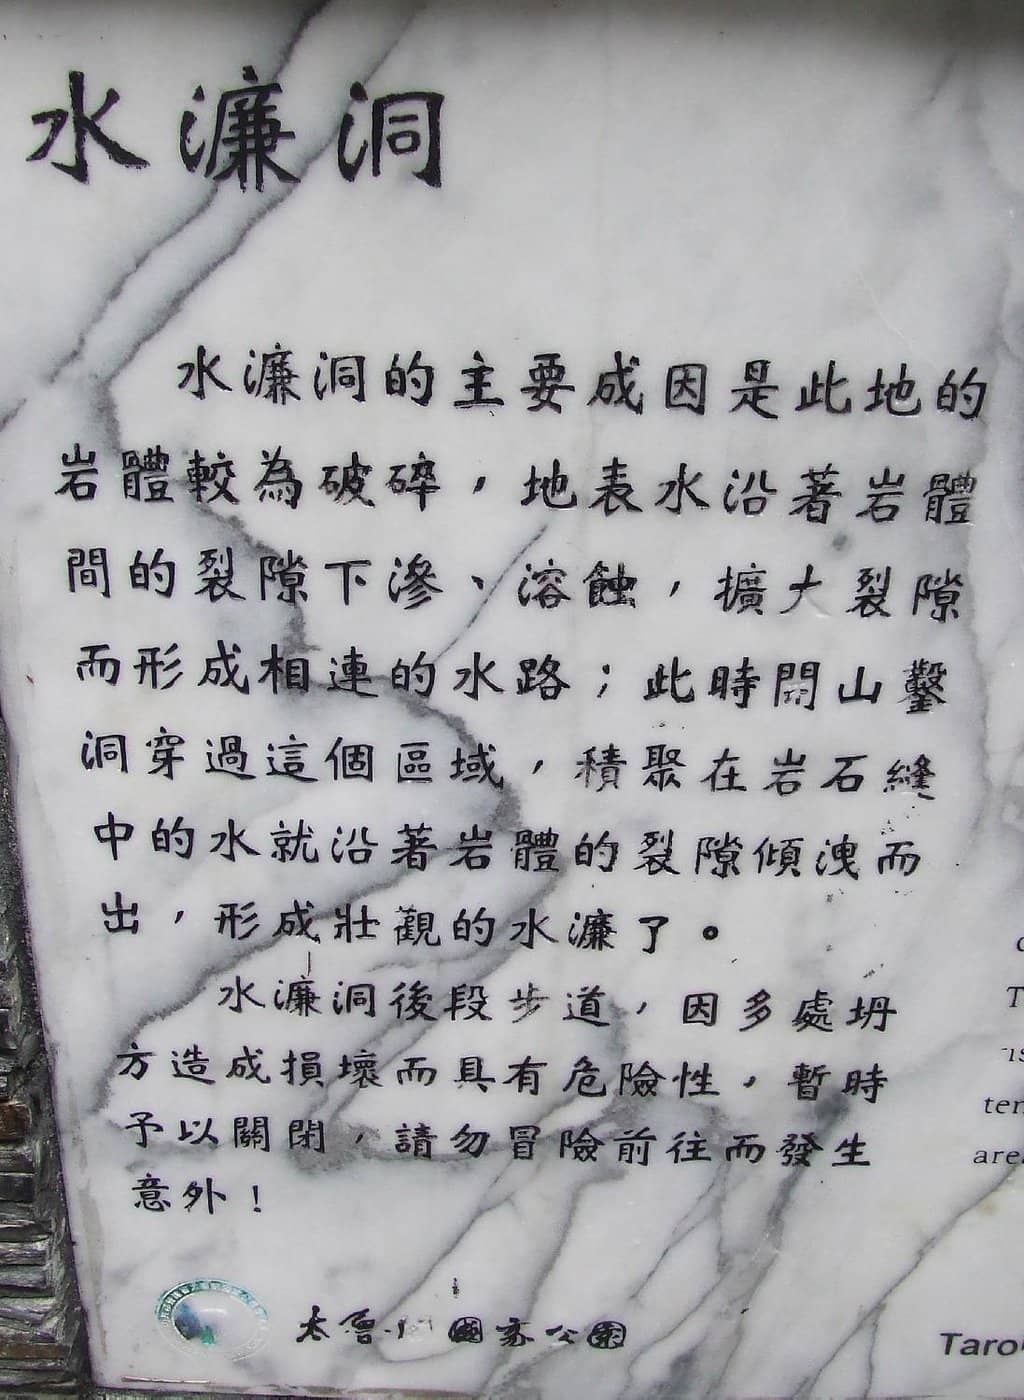 水濂洞
水濂洞的主要成因是此地的
岩體較為破碎，地表水沿著岩體
間的裂隙下滲、溶蝕，擴大裂隙
而形成相連的水路；此時開山鑿
洞穿過這個區域，積聚在岩石縫
中的水就沿著岩體的裂隙傾洩而
出，形成壯觀的水濂了。
水濂洞後段步道，因多處坍
方造成損壞而具有危險性，暫時
予以關閉，請勿冒險前往而發生
意外！
太魯 國家公園
ten
are
Taro